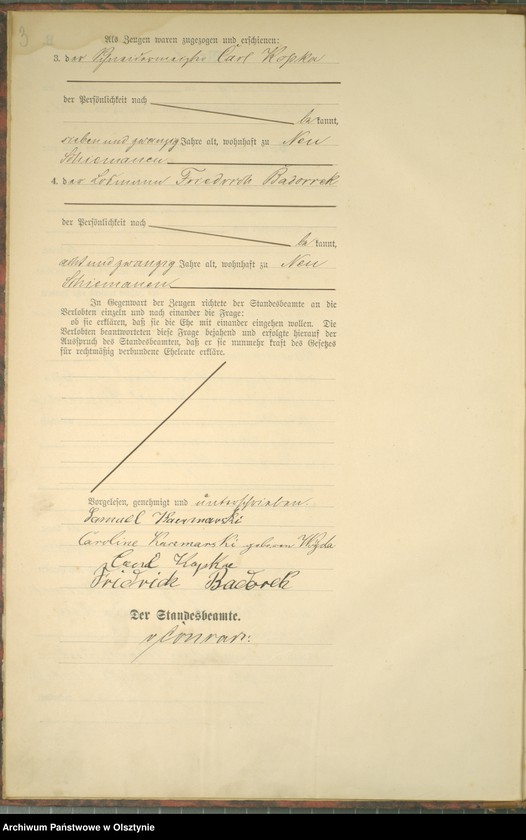 3
Als Zeugen waren zugezogen und erschienen:
3. der Schneidermeister Carl Kopka
der Persönlichkeit nach
be kannt,
sieben und zwanzig Jahre alt, wohnhaft zu Neu
Schiemanen
4. der Losmann Friedrich Badorrek
der Persönlichkeit nach
be kannt,
acht und zwanzig Jahre alt, wohnhaft zu Neu
Schiemanen
In Gegenwart der Zeugen richtete der Standesbeamte an die
Verlobten einzeln und nach einander die Frage:
ob sie erklären, daß sie die Ehe mit einander eingehen wollen. Die
Verlobten beantworteten diese Frage bejahend und erfolgte hierauf der
Ausspruch des Standesbeamten, daß er sie nunmehr kraft des Gesetzes
für rechtmäßig verbundene Eheleute erkläre.
Vorgelesen, genehmigt und unterschrieben
Samuel Kaermarski
Caroline Karemarski geboren Wyda
Carl Kopka
Fridrick Badorek
Der Standesbeamte.
Conrad.
Archiwum Państwowe w Olsztynie